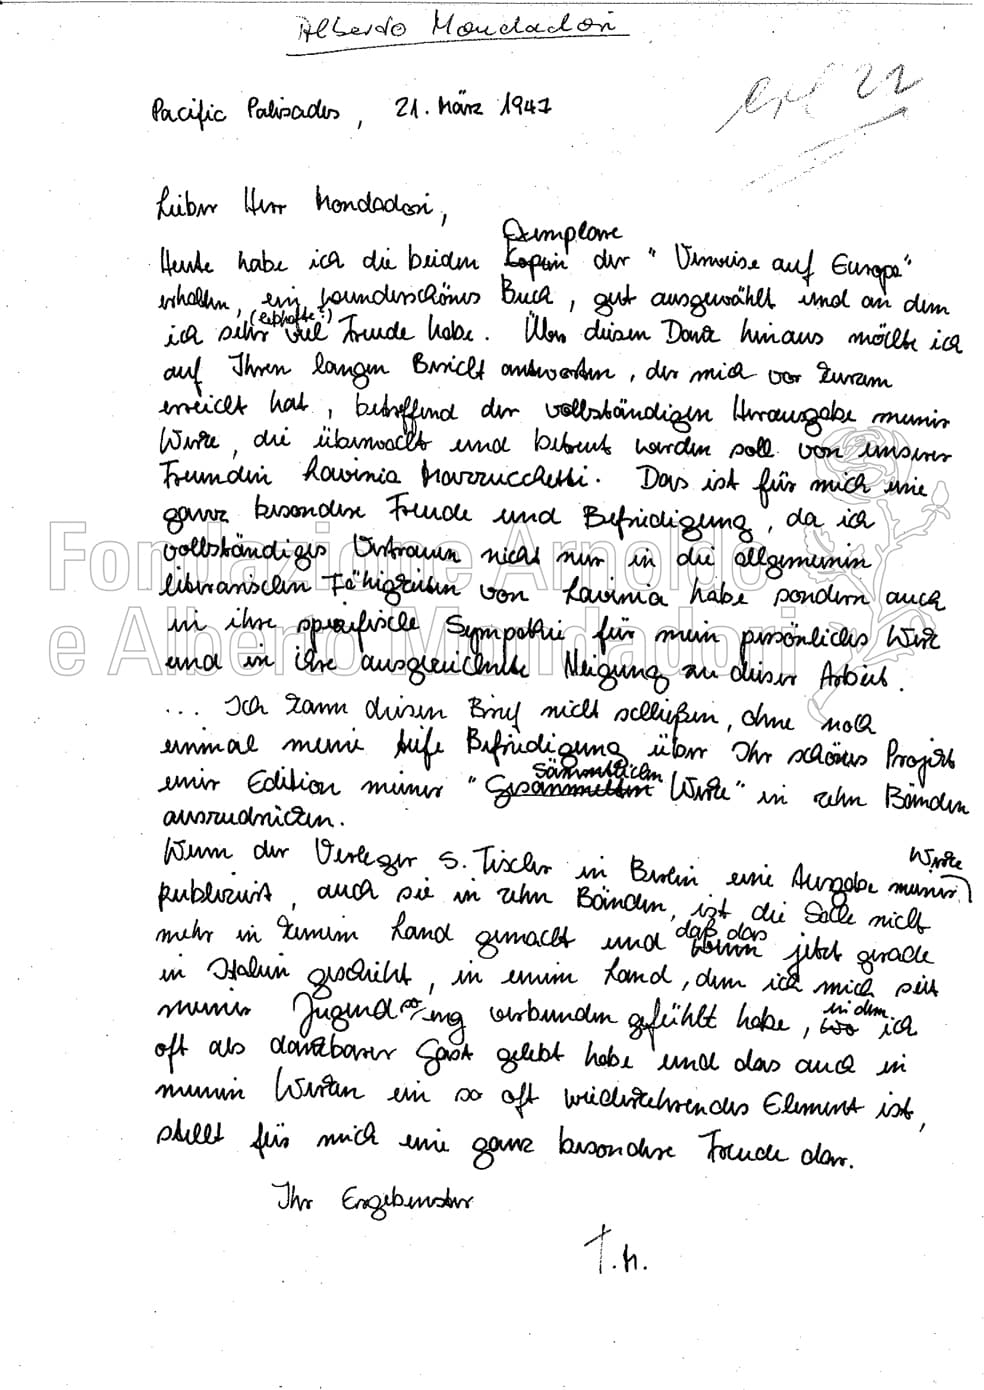 Alberto Mondadori
erl 22
Pacific Palisades, 21. März 1947
Lieber Herr Mondadori,
Exemplare
Heute habe ich die beiden Kopien der "Verweise auf Europa"
erhalten, ein wunderschönes Buch, gut ausgewählt und an dem
(lebhafte?)
ich sehr viel Freude habe. Über diesen Dank hinaus möchte ich
auf Ihren langen Bericht antworten, der mich vor kurzem
erreicht hat, betreffend der vollständigen Herausgabe meiner
Werke, die überwacht und betreut werden soll von unserer
Freundin Lavinia Mazzucchetti. Das ist für mich eine
ganz besondere Freude und Befriedigung, da ich
vollständiges Vertrauen nicht nur in die allgemeinen
literarischen Fähigkeiten von Lavinia habe sondern auch
in ihre spezifische Sympathie für mein persönliches Werk
und in ihre ausgezeichnete Neigung zu dieser Arbeit.
... Ich kann diesen Brief nicht schließen, ohne noch
einmal meine tiefe Befriedigung über Ihr schönes Projekt
Sämmtlichen
einer Edition meiner "Gesammelten Werke" in zehn Bänden
auszudrücken.
Werke
Wenn der Verleger S. Fischer in Berlin eine Ausgabe meiner
publiziert, auch sie in zehn Bänden, ist die Sache nicht
daß das
mehr in keinem Land gemacht und wenn jetzt gerade
in Italien geschieht, in einem Land, dem ich mich seit
in dem
meiner Jugend so eng verbunden gefühlt habe, wo ich
oft als dankbarer Gast gelebt habe und das auch in
meinen Werken ein so oft wiederkehrendes Element ist,
stellt für mich eine ganz besondere Freude dar.
Ihr Ergebenster
T.M.
Fondazione Arnoldo
e Alberto Mondadori